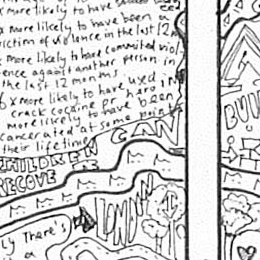 x more likely to have
x more likely to have been a
victim of violence in the last 12 m
x more likely to have committed viol
ence against another person in
the last 12 months.
6x more likely to have used in
crack cocaine or heroin
more likely to have been
cancerated at some point
their lifetime
CAN
CHILDREN
RECOVE
LONDON
BUIL
Ly There's
a